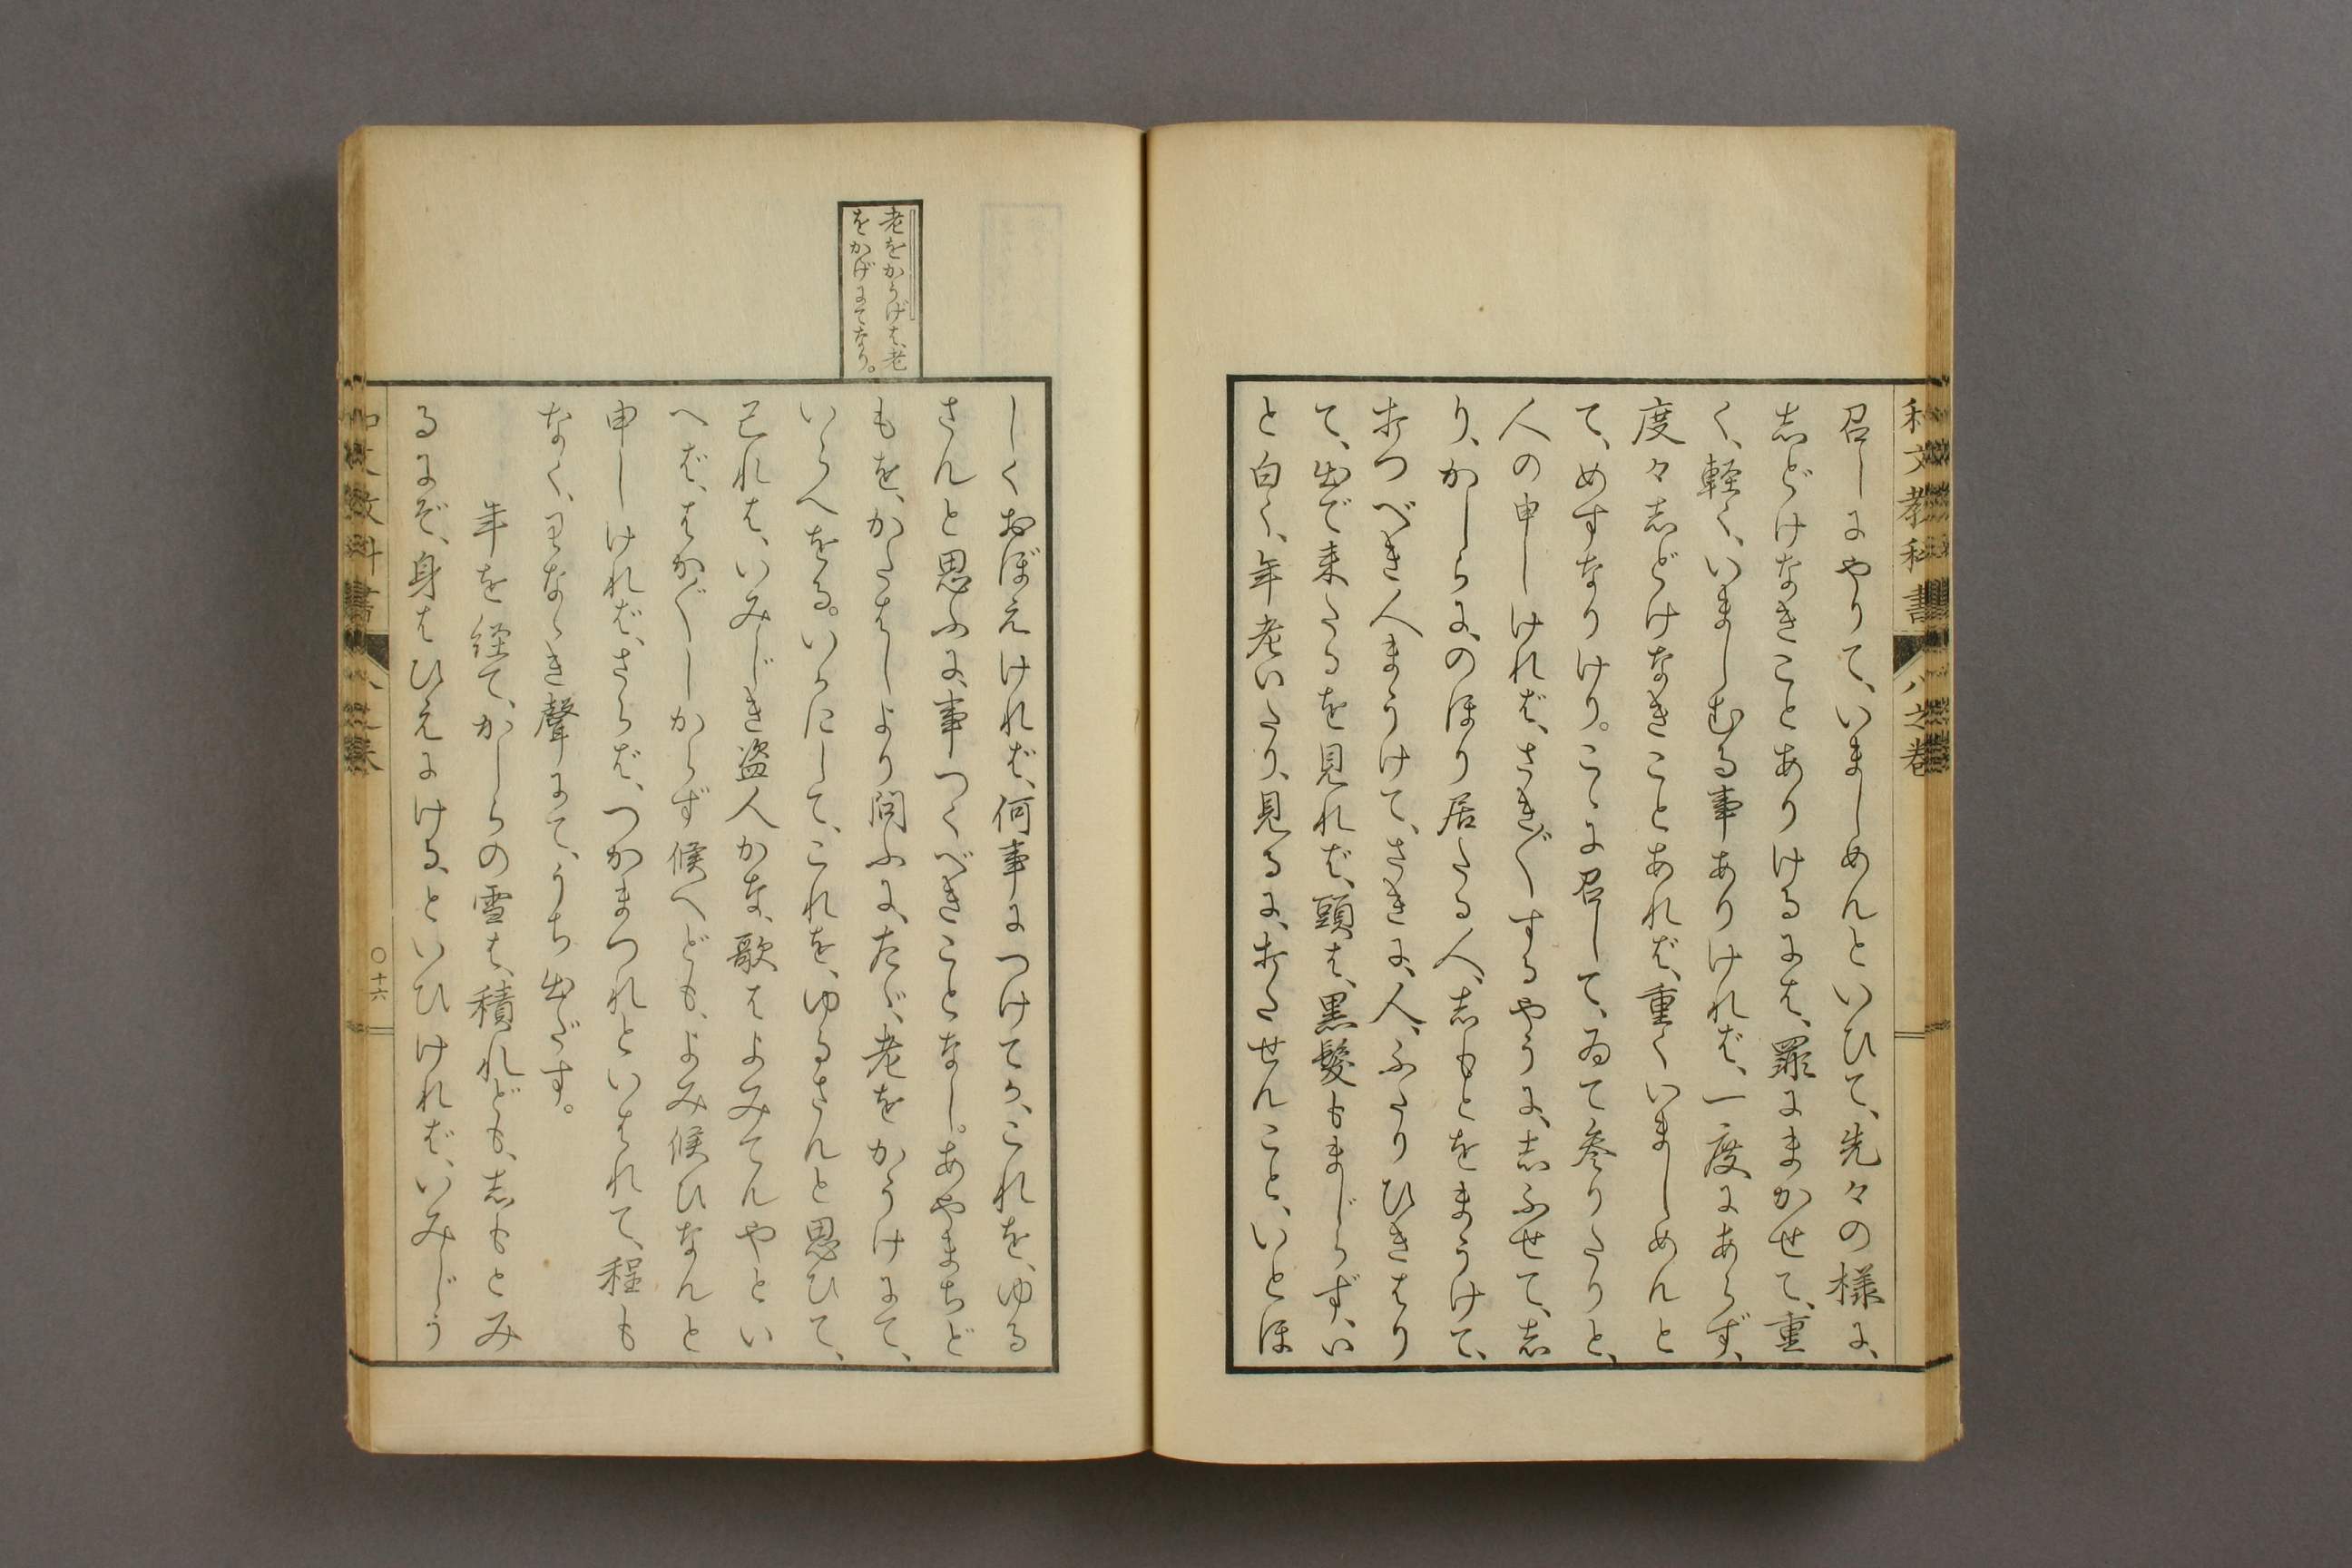 和文教科書 八之巻
召しにやりて、いましめんといひて、先々の様に、
志どけなきことありけるには、罪にまかせて、重
く、軽く、いましむる事ありければ、一度にあらず、
度々志どけなきことあれば、重くいましめんと
て、めすなりけり。こゝに召して、ゐて参りたりと、
人の申しければ、さき〴〵するやうに、志ふせて、志
り、かしらに、のぼり居たる人、志もとをまうけて、
打つべき人まうけて、さきに、人、ふたりひきはり
て、出で来たるを見れば、頭は、黒髪もまじらず、い
と白く、年老いたり、見るに、打たせんこと、いとほ
しくおぼえければ、何事につけてか、これを、ゆる
さんと思ふに、事つくべきことなし。あやまちど
もを、かたはしより問ふに、たゞ、老をかうけにて、
いらへをる。いかにして、これを、ゆるさんと思ひて、
己れは、いみじき盗人かな、歌はよみてんやとい
へば、はか〴〵しからず候へども、よみ候ひなんと
申しければ、さらば、つかまつれといはれて、程も
なく、わなゝき聲にて、うち出だす。
年を経て、かしらの雪は、積れども、志もとみ
るにぞ、身はひえにける、といひければ、いみじう
老をかうげは、老
をかげにてなり。
和文教科書 八之巻 〇十六